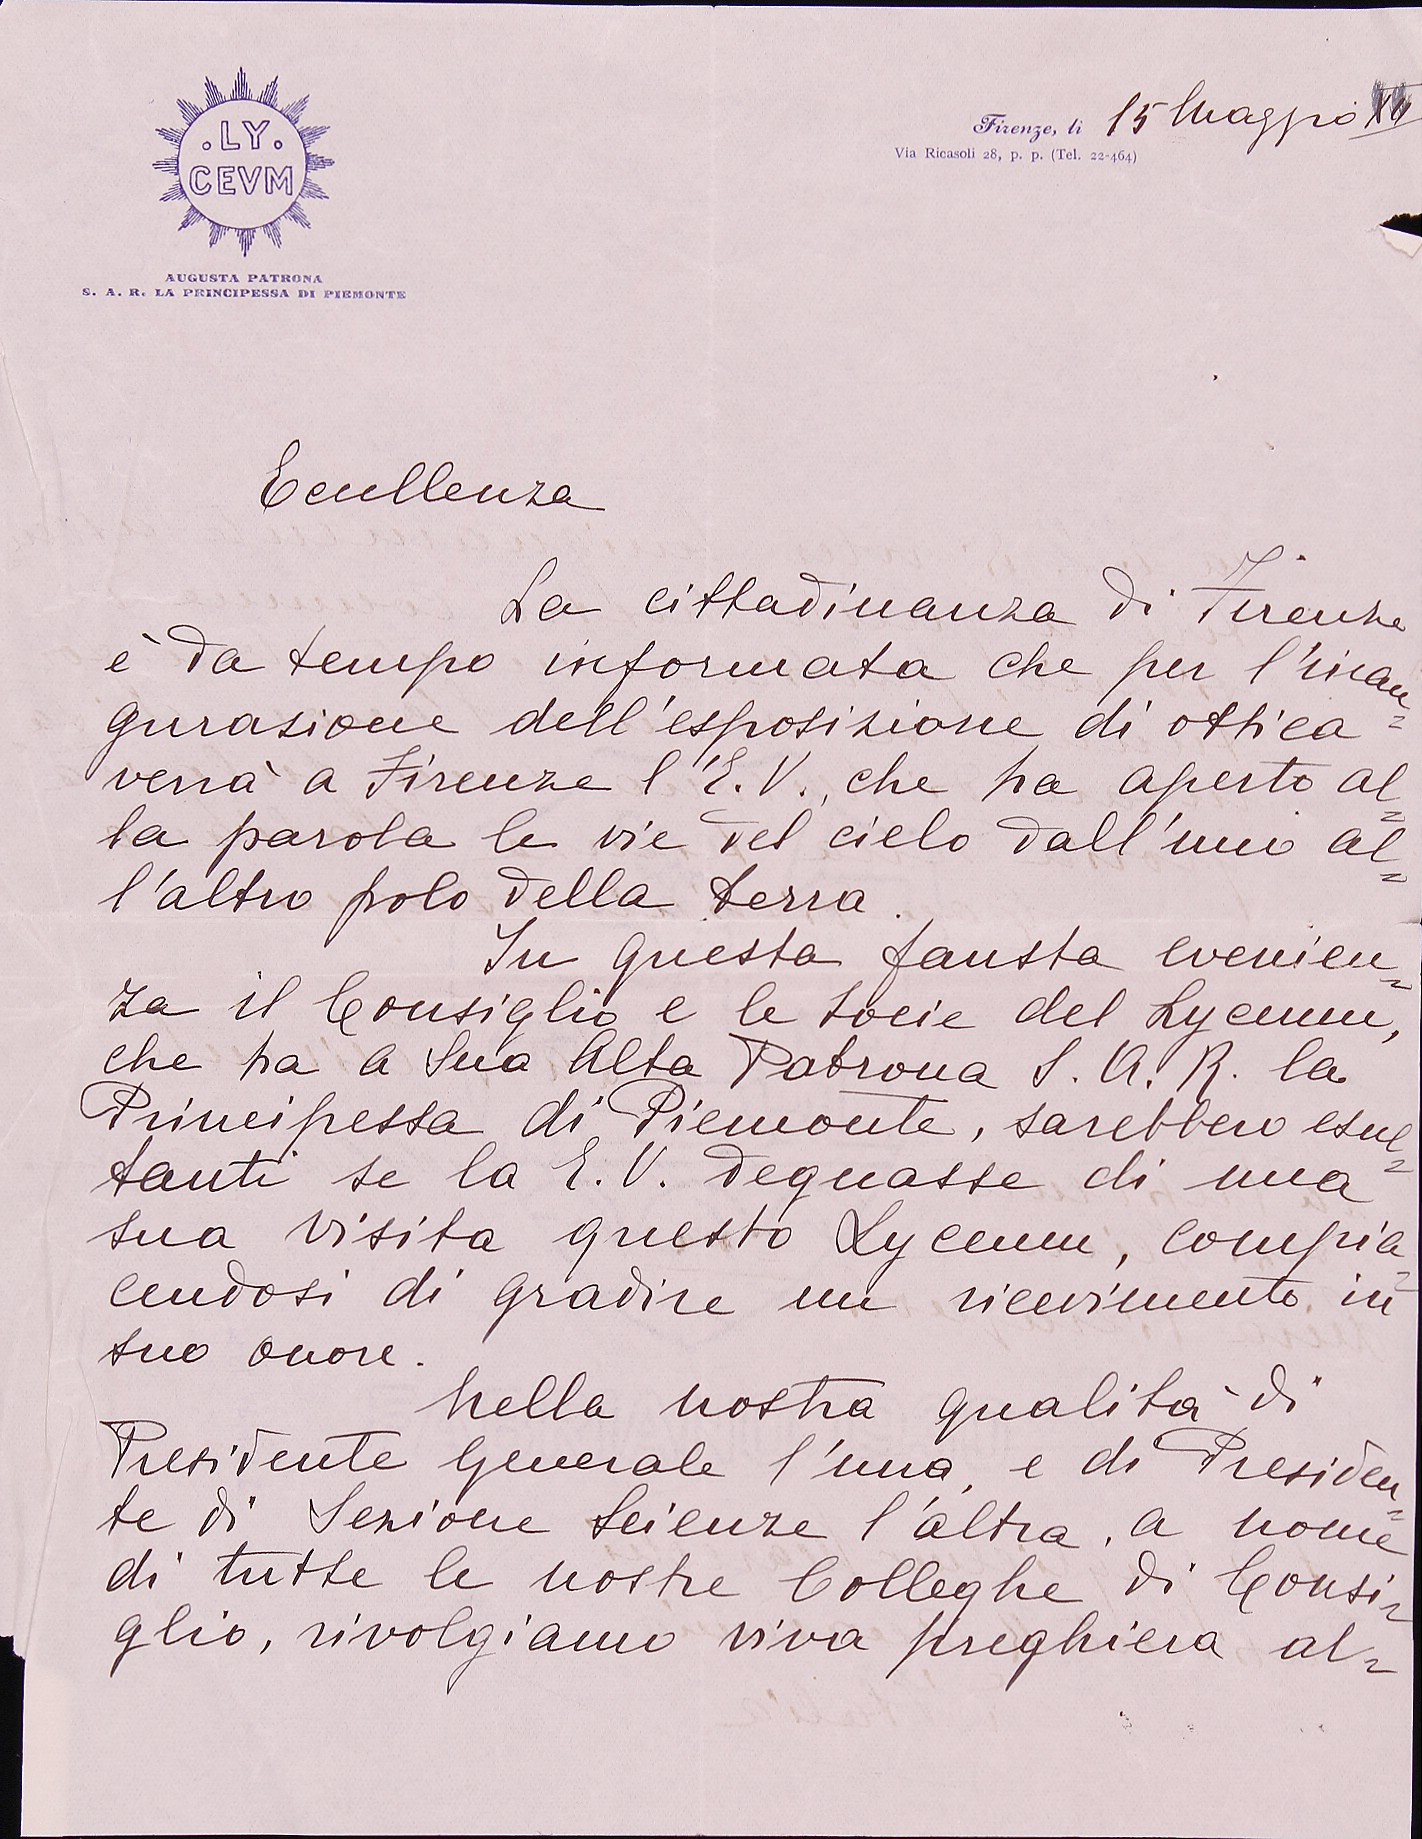 . LY .
CEVM
AUGUSTA PATRONA
S. A. R. LA PRINCIPESSA DI PIEMONTE
Firenze, li 15 Maggio XII
Via Ricasoli 28, p. p. (Tel. 22-464)
Eccellenza
La cittadinanza di Firenze
è da tempo informata che per l'inau=
gurazione dell'esposizione di ottica
verrà a Firenze l'E. V., che ha aperto al=
la parola le vie del cielo dall'uno al=
l'altro polo della terra.
In questa fausta evenien=
za il Consiglio e le Socie del Lyceum,
che ha a Sua Alta Patrona S. A. R. la
Principessa di Piemonte, sarebbero esul=
tanti se la E. V. degnasse di una
sua visita questo Lyceum, compia=
cendosi di gradire un ricevimento in
suo onore.
Nella nostra qualità di
Presidente Generale l'una, e di Presiden=
te di Sezione Scienze l'altra, a nome
di tutte le nostre Colleghe di Consi=
glio, rivolgiamo viva preghiera al=